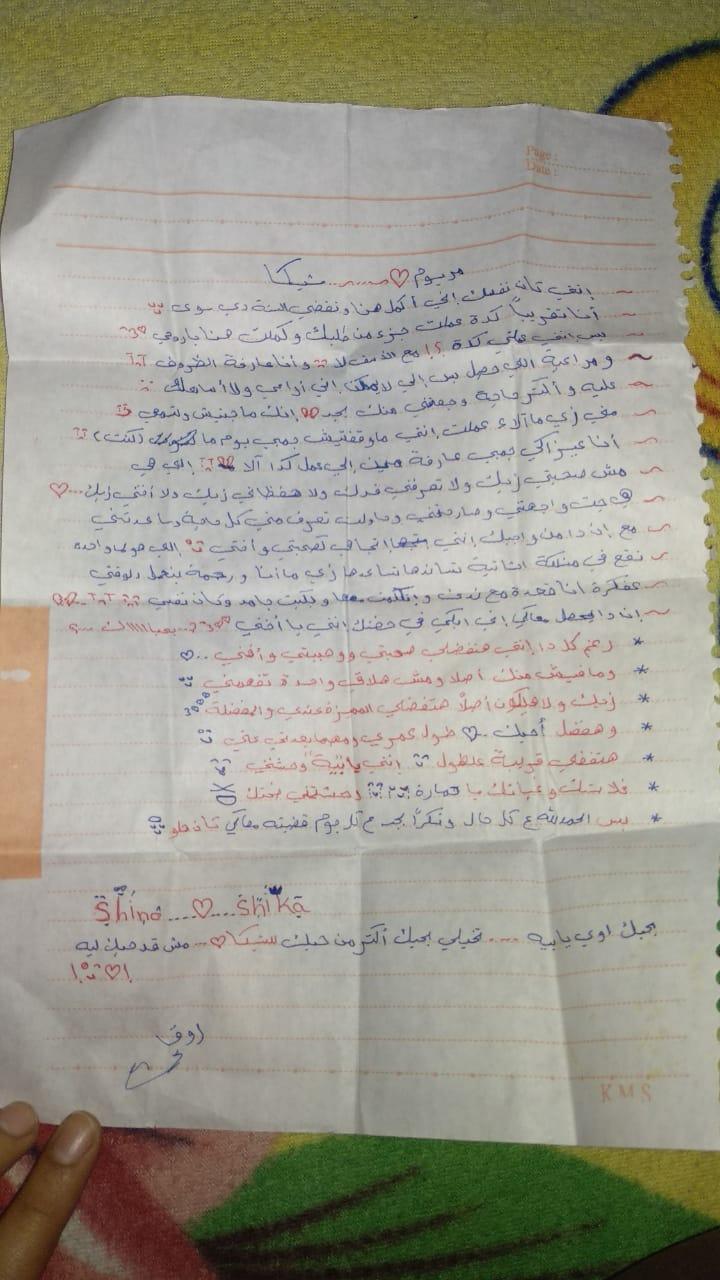 Page :
Date :
مريوم ♡ ...... شيكا
~ إنتي كان نفسك إني أكمل هنا ونقضي السنة دي سوى
~ أنا تقريباً كدة عملت جزء من طلبك وكملت هنا ياروحي
~ بس إنتي عملتي كدة ؟! مع الأسف لا وأنا عارفة الظروف
~ ومراعية اللي حصل بس إني لا يمكن إني أوامي ولا أسامحك
~ عليه وأكتر حاجة وجعتني منك بجد إنك ماجتيش ولتومي
~ معي زي ما آلاء عملت إنتي ماوقفتيش جمبي يوم ما (كنت)
~ أنا عيزاكي جمبي عارفة مين إلي عمل كدا آلا إلي هي
~ مش صحبتي زيك ولا تعرفني قدك ولا هفظاني زيك ولا أختي زيك ... ♡
~ هي جت واجهتني وصارحتني وحاولت تعرف مني كل حاجة وساعدتني
~ مع إن دا من واجبك إنتي اتجاهي كصحبتي وأختي إلي هو لما واحدة
~ تقع في مشكلة التانية تساندها تساعدها زي ما أنا و بنعمل دلوقتي
~ عفكرة أنا قعدة مع ندى و وبكيت جامد وكان نفسي
~ إن دا يحصل معاكي إني أبكي في حضنك إنتي يا أختي
* رغم كل دا إنتي هتفضلي صحبتي وحبيبتي وأختي .. ♡
* ومافيش منك أصلا ومش هلاقي واحدة تفهمني
* زيك ولا هيكون أصلاً هتفضلي المميزة عندي والمفضلة
* وهفضل أحبك .. ♡ طول عمري ومهما بعدتي عني
* هتفضلي قريبة علطول إنتي يا بيه وحشتني
* وغبائك يا حمارة وحشتيني
* بس الحمدلله ع كل حال وشكراً بجد ع كل يوم قضيته معاكي كان حلو
Shino .... ♡ ... Shika
بحبك اوي يابيه .... تخيلي بحبك أكتر من حبك لشيكا ♡ ... مش قد حبك ليه
! ♡ !
KMS